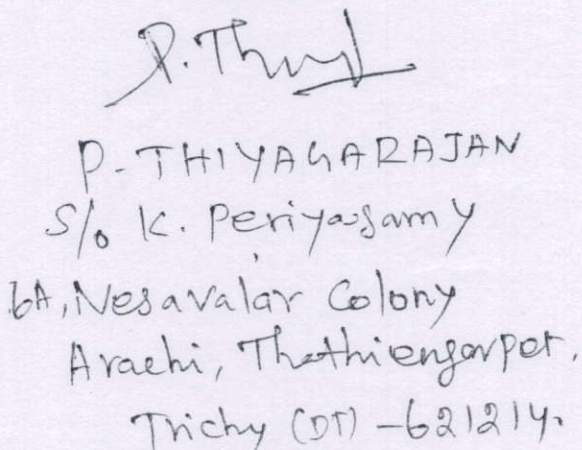 P. Thy
P. THIYAGARAJAN
S/o K. Periyasamy
6A, Nesavalar Colony
Arachi, Thathiengarpet,
Trichy (DT) - 621214.